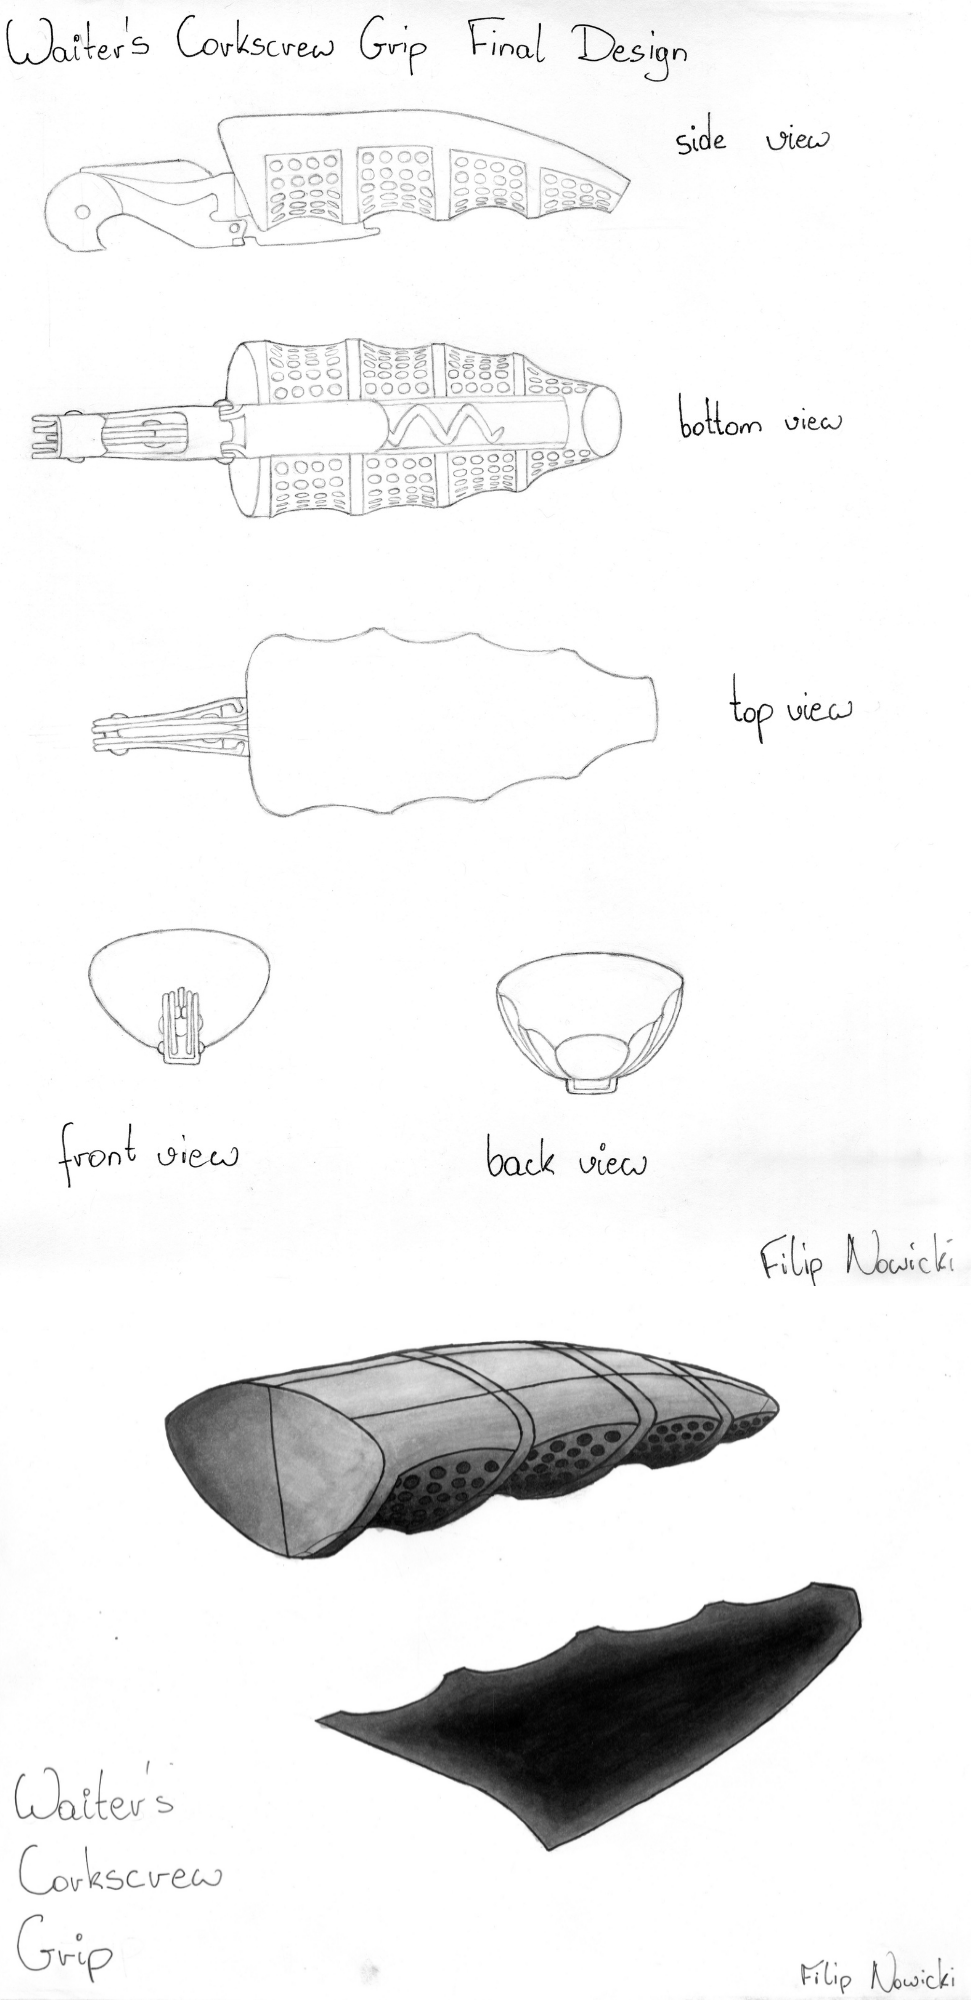 Waiter's Corkscrew Grip Final Design
side view
bottom view
top view
front view
back view
Filip Nowicki
Waiter's
Corkscrew
Grip
Filip Nowicki